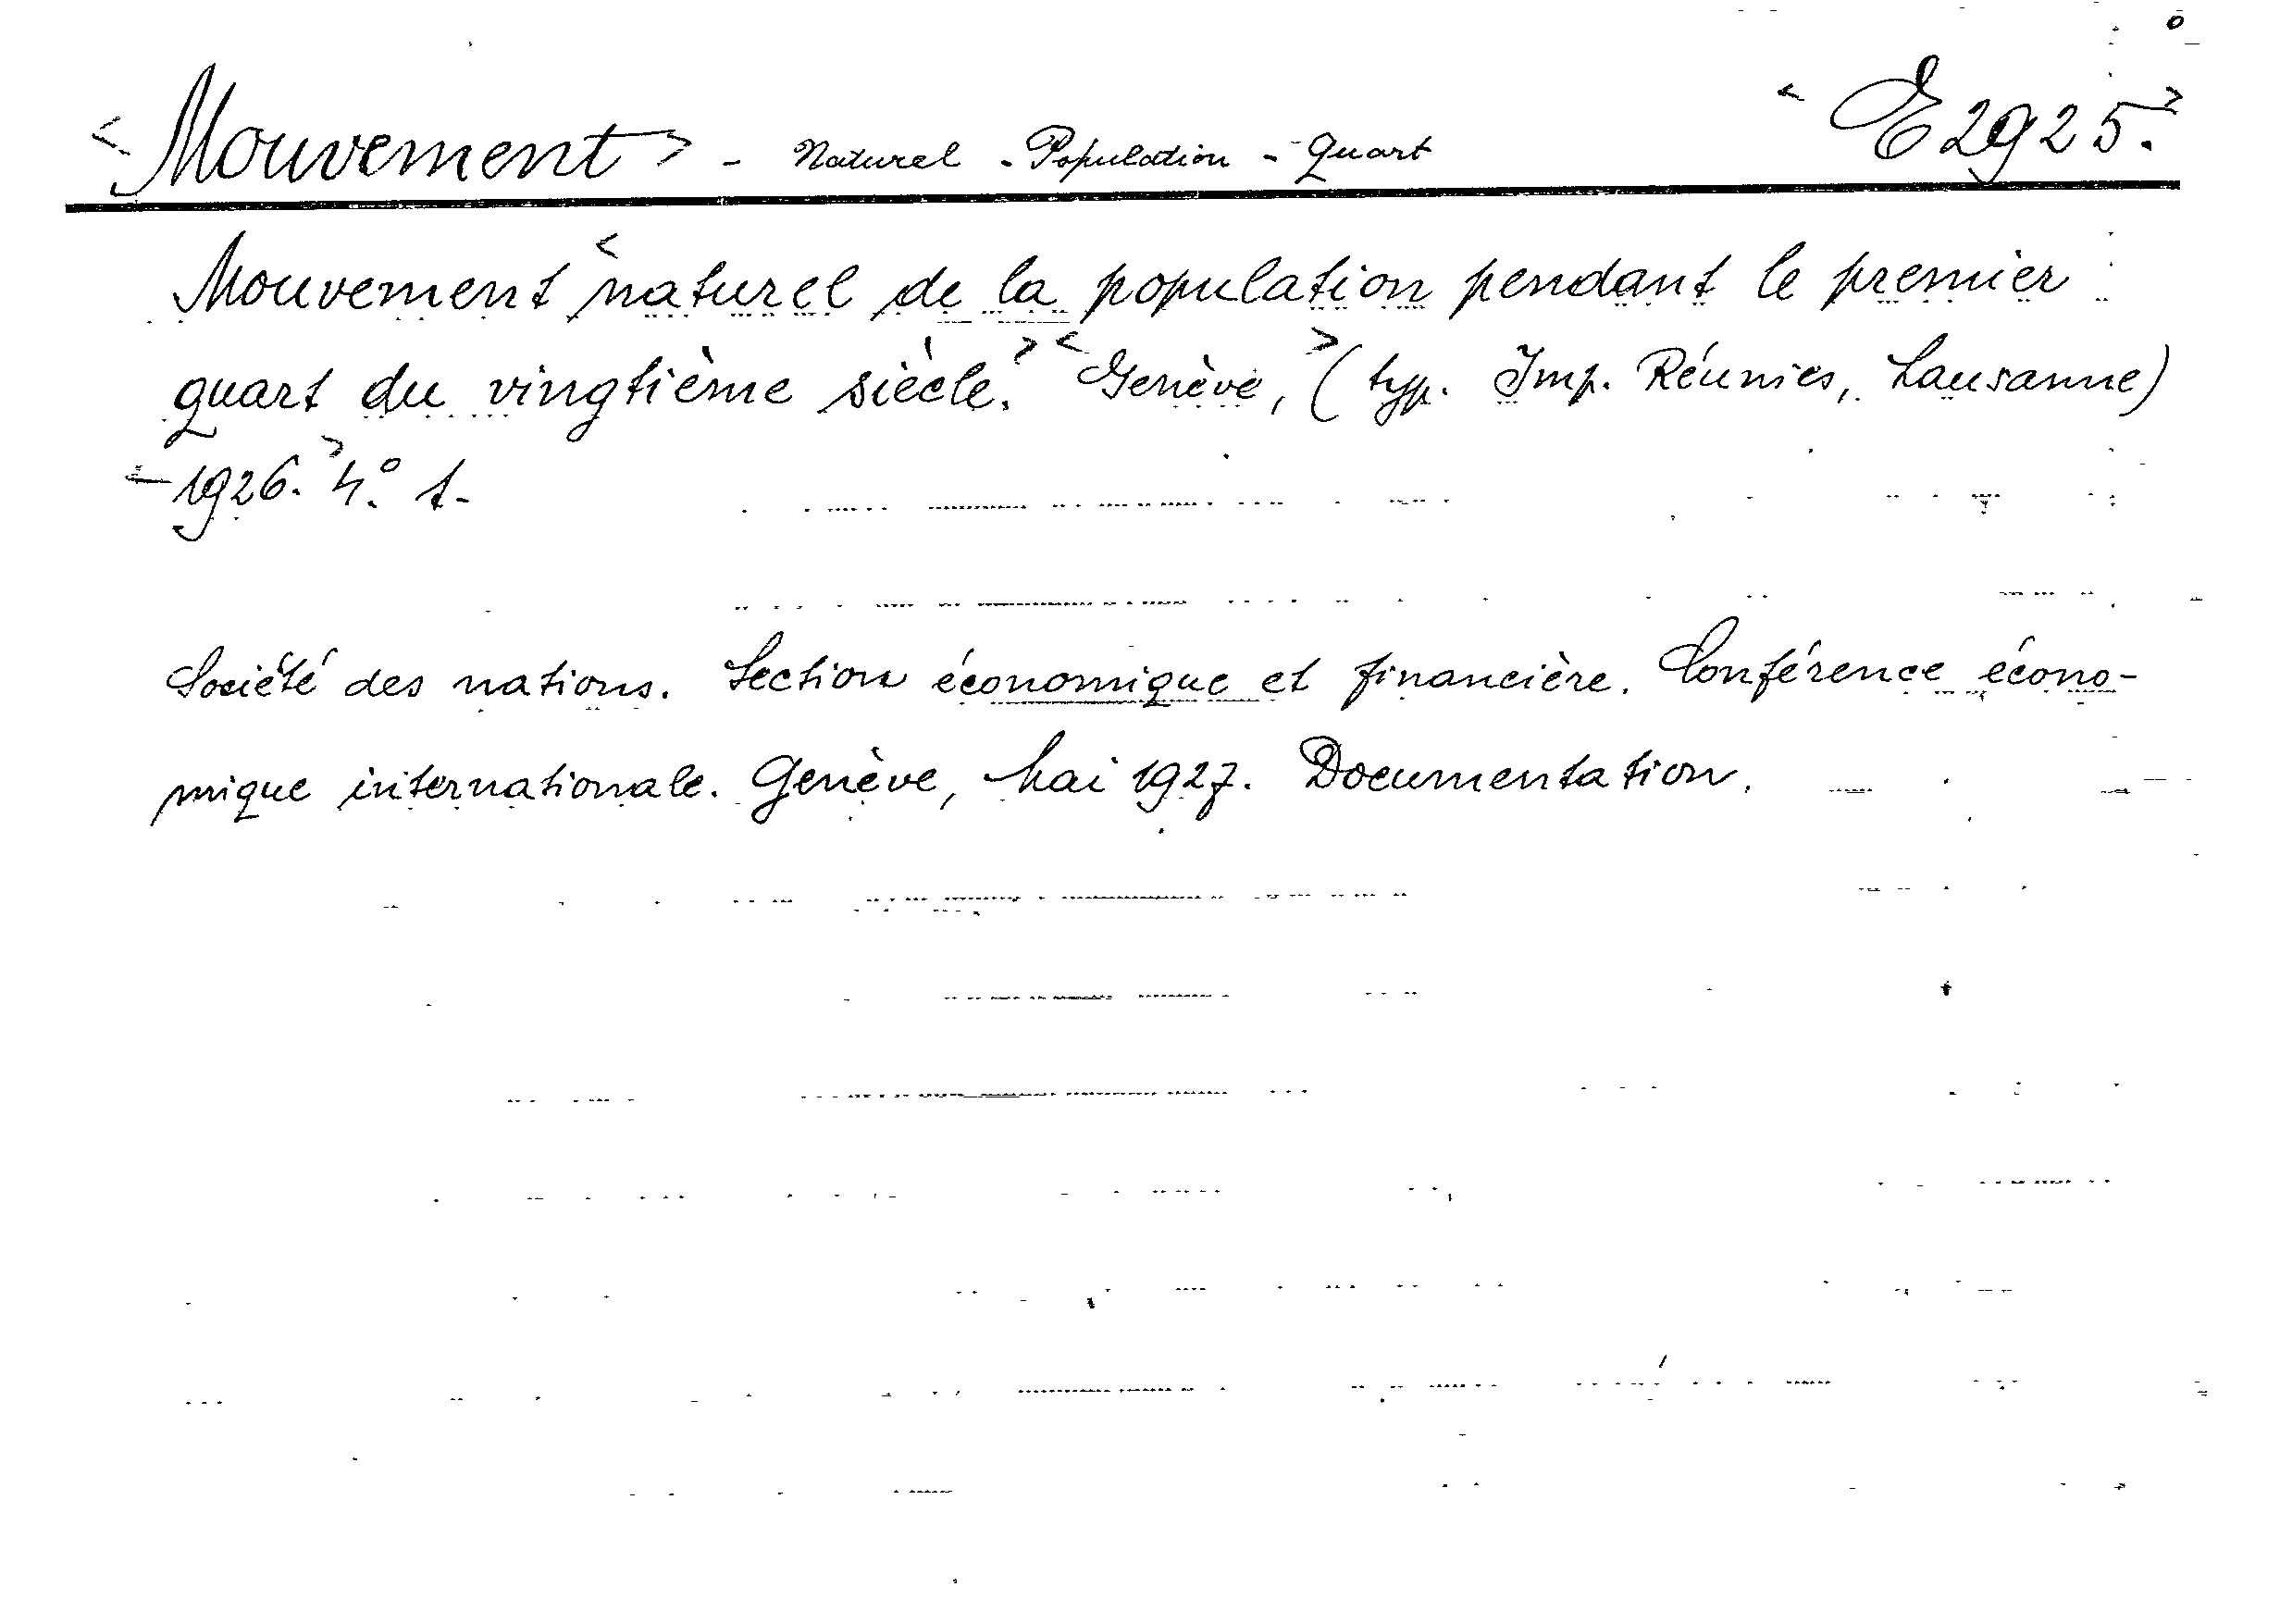 <Mouvement> - Naturel - Population - Quart <E2925.>
Mouvement <naturel de la population pendant le premier
quart du vingtième siècle.> <Genève,> (typ. Imp. Réunies, Lausanne)
<1926.> 4.º t-
Société des nations. Section économique et financière. Conférence écono-
mique internationale. Genève, Mai 1927. Documentation.